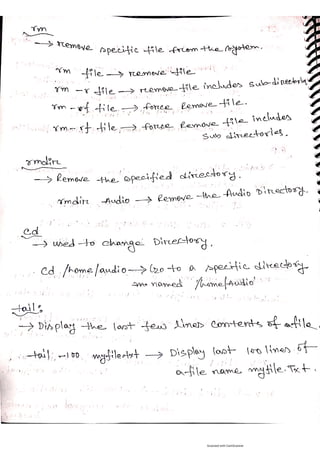 rm
→ Remove specific file from the system.
rm file → remove file
rm -r file → remove file includes sub-directory
rm -f file → force Remove file.
rm -rf file → force Remove file includes
Sub directories.
rmdir
→ Remove the specified directory.
rmdir Audio → Remove the Audio Directory.
cd
→ used to change Directory.
Cd /home/audio → Go to a specific directory
named '/home/Audio'
tail:
→ Display the last few lines contents of a file.
tail -100 myfile.txt → Display last 100 lines of
a file name myfile.Txt.
Scanned with CamScanner